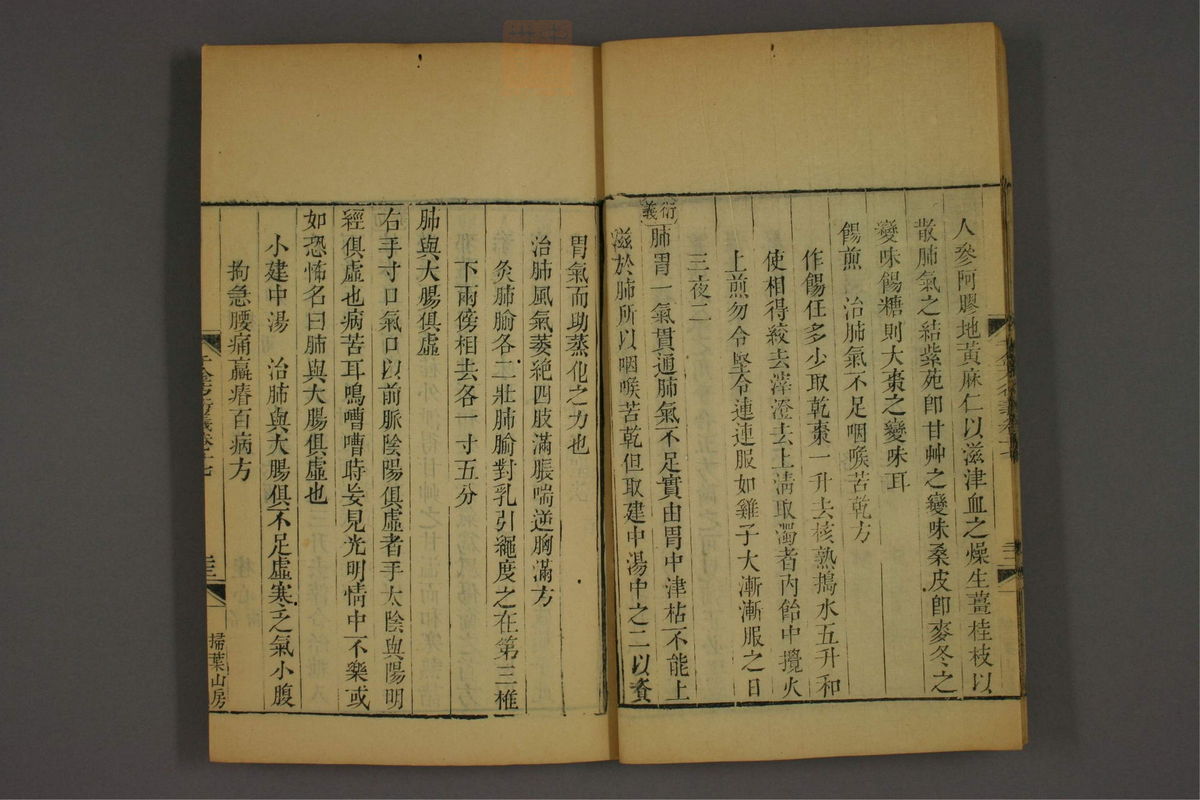 人參阿膠地黃麻仁以滋津血之燥生薑桂枝以
散肺氣之結紫苑卽甘艸之變味桑皮卽麥冬之
變味餳糖則大棗之變味耳
餳煎　治肺氣不足咽喉苦乾方
作餳任多少取乾棗一升去核熟搗水五升和
使相得絞去滓澄去上淸取濁者內飴中攪火
上煎勿令堅令連連服如雞子大漸漸服之日
三夜二
衍義肺胃一氣貫通肺氣不足實由胃中津枯不能上
滋於肺所以咽喉苦乾但取建中湯中之二以資
胃氣而助蒸化之力也
治肺風氣萎絕四肢滿脹喘逆胸滿方
灸肺腧各二壯肺腧對乳引繩度之在第三椎
下兩傍相去各一寸五分
肺與大腸俱虛
右手寸口氣口以前脈陰陽俱虛者手太陰與陽明
經俱虛也病苦耳鳴嘈嘈時妄見光明情中不樂或
如恐怖名曰肺與大腸俱虛也
小建中湯　治肺與大腸俱不足虛寒乏氣小腹
拘急腰痛羸瘠百病方
掃葉山房